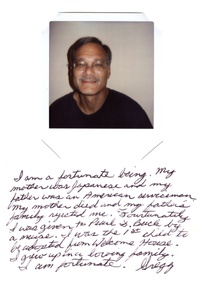 I am a fortunate being. My
mother was Japanese and my
father was an American serviceman.
My mother died and my father's
family rejected me. Fourtunately
I was given to Pearl S. Buck by
a nurse. I was the 1st child to
be adopted from Welcome House.
I grew up in a loving family.
I am fortunate. Gregg